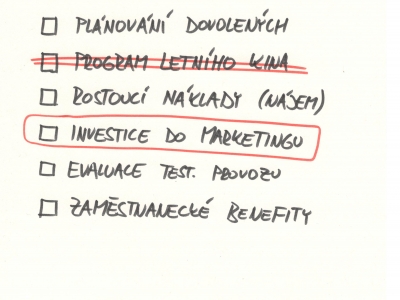 PLÁNOVÁNÍ DOVOLENÝCH
PROGRAM LETNÍHO KINA
ROSTOUCÍ NÁKLADY (NÁJEM)
INVESTICE DO MARKETINGU
EVALUACE TEST. PROVOZU
ZAMĚSTNANECKÉ BENEFITY